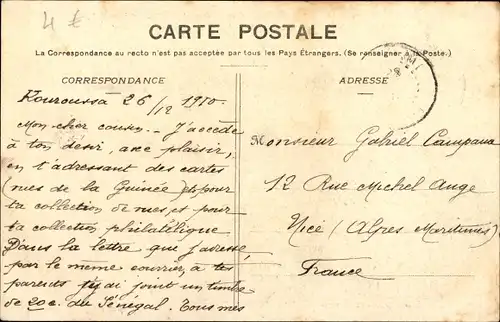 4 €
CARTE POSTALE
La Correspondance au recto n'est pas acceptée par tous les Pays Étrangers. (Se renseigner à la Poste.)
CORRESPONDANCE
Kouroussa 26/12 1910.
Mon cher cousin. - J'accède
à ton désir, avec plaisir,
en t'adressant des cartes
(vues de la Guinée) et pour
ta collection de vues, et pour
ta collection philatélique
Dans la lettre que j'adresse
par le même courrier à tes
parents j'y ai joint un timbre
de 20c. du Sénégal. Tous mes
ADRESSE
Monsieur Gabriel Campana
12 Rue Michel Ange
Nice (Alpes Maritimes)
France